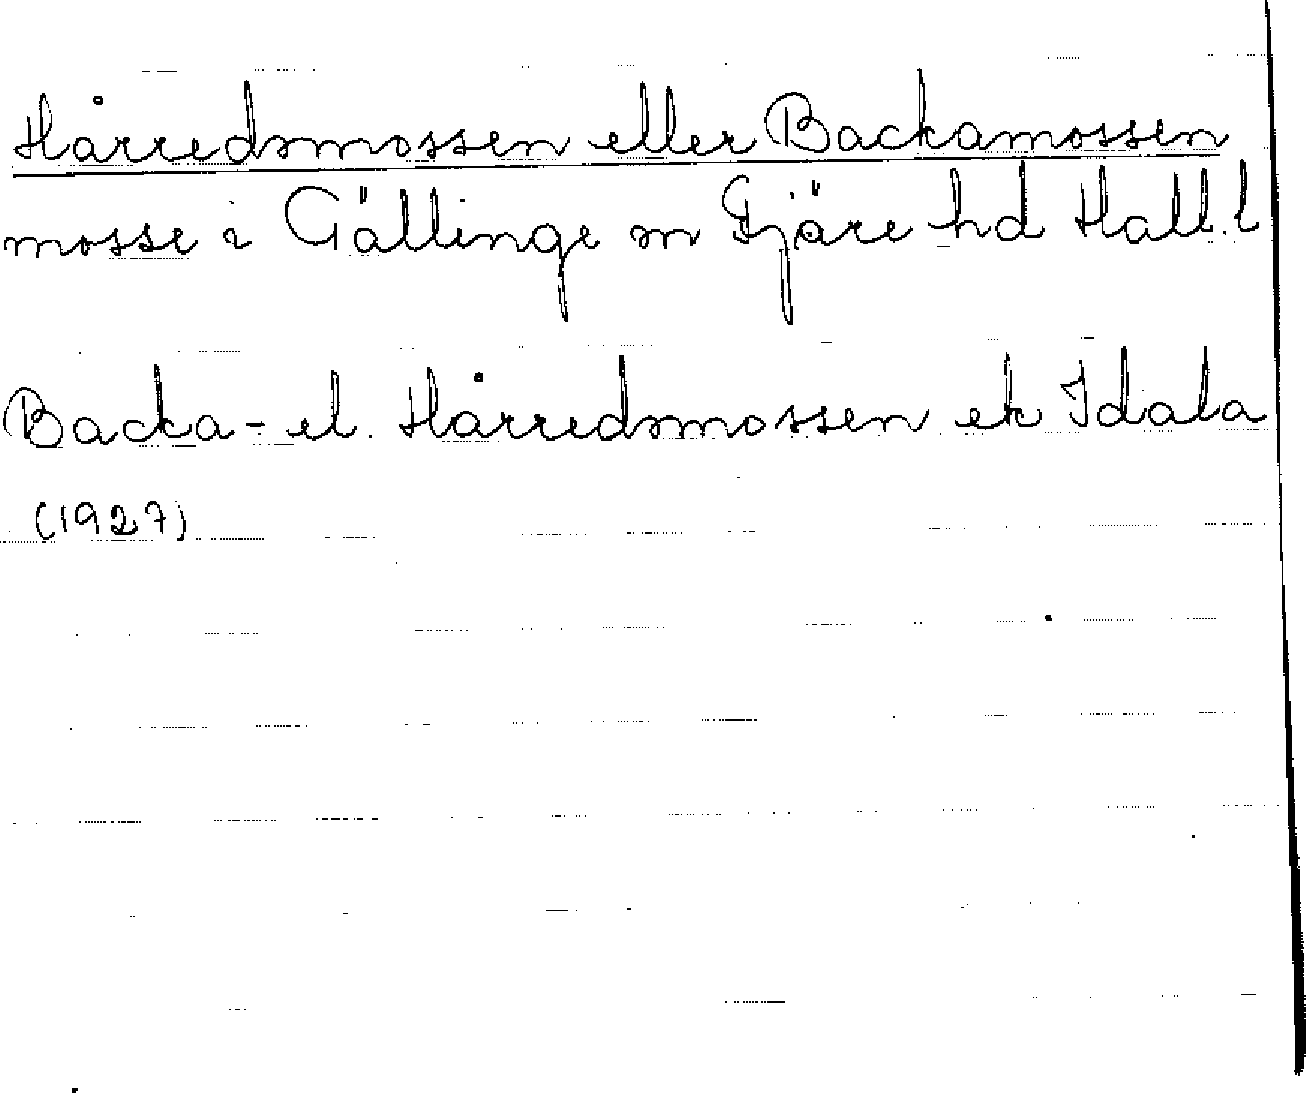 Hårredsmossen eller Backamossen
mosse i Gällinge sn Fjäre hd Hall. l
Backa- el. Hårredsmossen ek Idala
(1927)